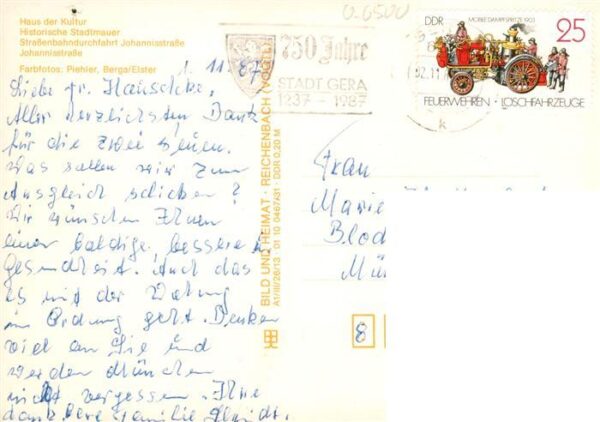 Haus der Kultur
Historische Stadtmauer
Straßenbahndurchfahrt Johannisstraße
Johannisstraße
Farbfotos: Piehler, Berga/Elster
1. 11. 87
Liebe Fr. Hauschke,
Aller herzlichsten Dank
für die zwei
Was sollen wir zum
Ausgleich schicken?
Wir wünschen Ihnen
einer baldige, bessere
Gesundheit. Auch das
es mit der
in Ordnung geht. Denken
viel an Sie und
werden München
nicht vergessen. Ihre
dankbare Familie
750 Jahre
STADT GERA
1237 - 1987
BILD UND HEIMAT · REICHENBACH (VOGTL)
A1/III/26/13 01 10 0467/31 DDR 0,20 M
DDR
MOBILE DAMPFSPRITZE 1903
25
FEUERWEHREN · LÖSCHFAHRZEUGE
Frau
Marie
Blod
Mün
8